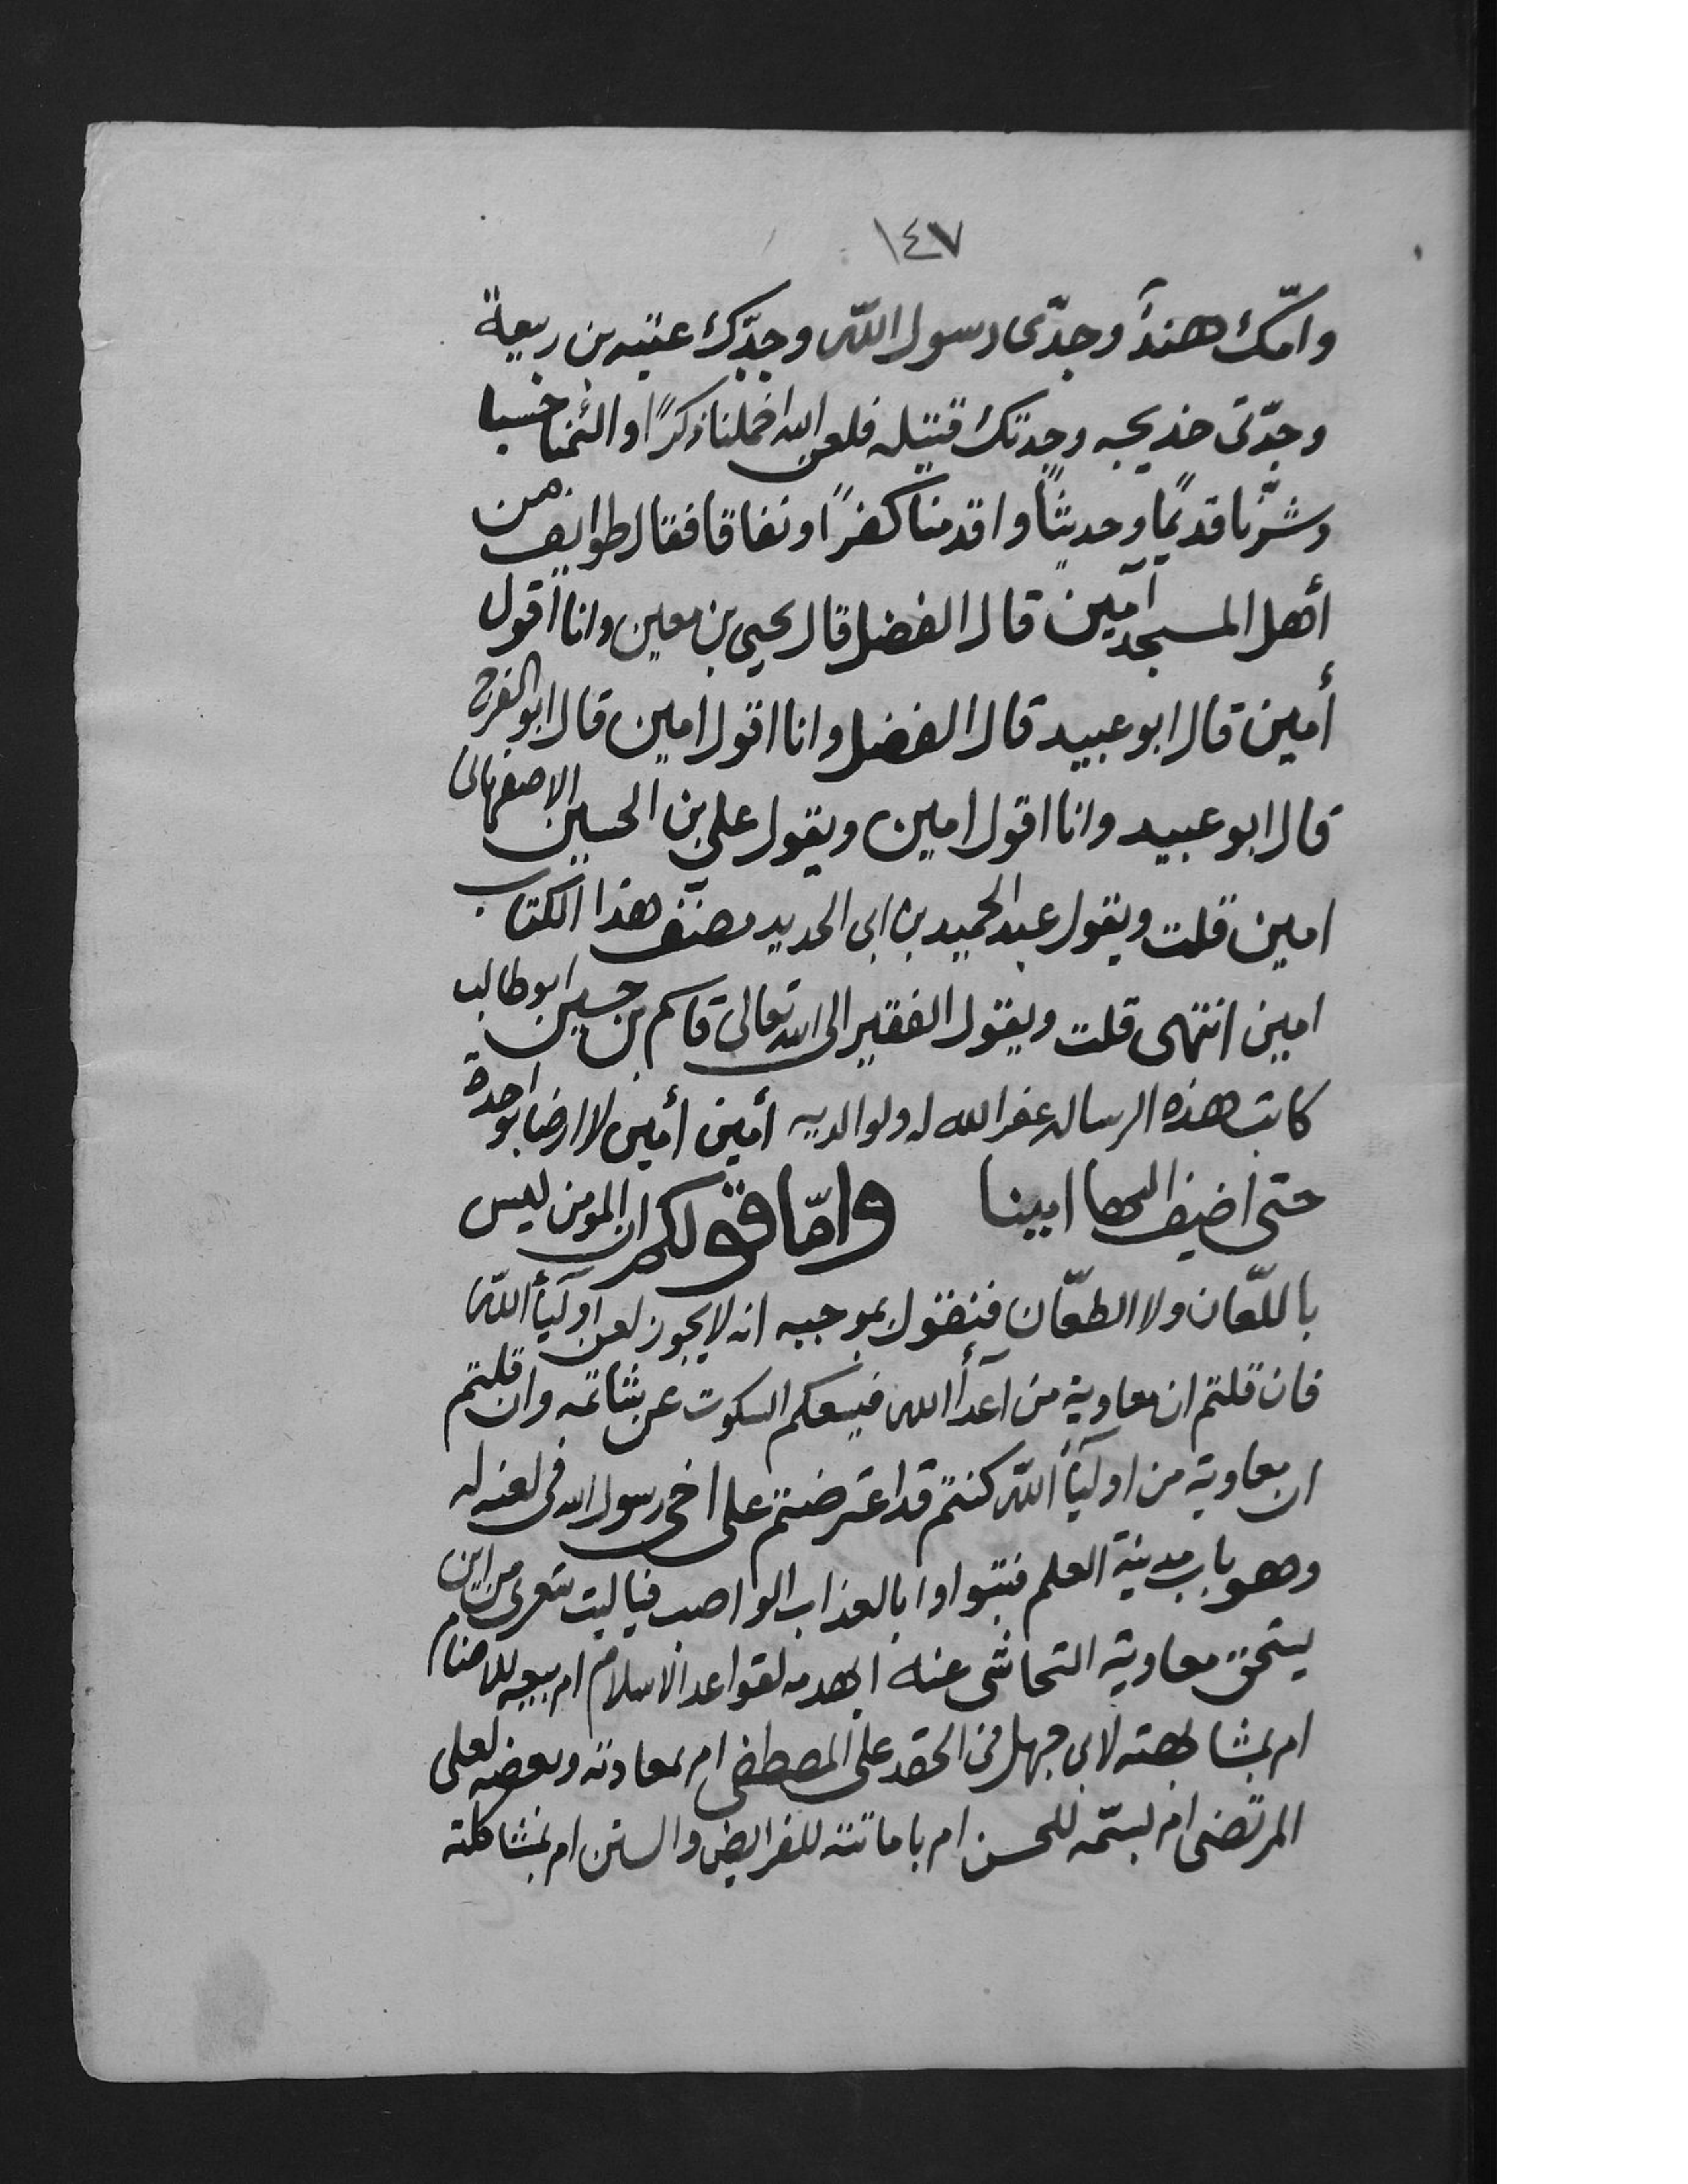 ١٤٧
وامّك هندآ وجدّى رسول الله وجدّك عتبه بن ربيعة
وجدّتى خديجه وجدتك قتيله فلعن الله اخملنا ذكرًا والئمنا حسبا
وشرّنا قديمًا وحديثًا واقدمنا كفرًا ونفاقا فقال طوايف من
أهل المسجد آمين قال الفضل قال يحيى بن معين وانا أقول
أمين قال ابو عبيد قال الفضل وانا اقول امين قال ابو الفرج
قال ابو عبيد وانا اقول امين ويقول على بن الحسين الاصفهانى
امين قلت ويقول عبد الحميد بن ابى الحديد مصنف هذا الكتاب
امين انتهى قلت ويقول الفقير الى الله تعالى قاسم بن حسين ابو طالب
كاتب هذه الرساله غفر الله له ولوالديه أمين أمين لا ارضا بواحدة
حتى اضيف اليها امينا وامّا قولكم ان المومن ليس
باللّعان ولا الطعّان فنقول بموجبه انه لا يجوز لعن اوليآأ الله
فان قلتم ان معاوية من اعدآأ الله فيسعكم السكوت عن شاتمه وان قلتم
ان معاوية من اوليآأ الله كنتم قد اعترضتم على اخى رسول الله فى لعنه له
وهو باب مدينة العلم فتبواوا بالعذاب الواصب فيا ليت شعرى من اين
يستحق معاوية التحاشى عنه ابهدمه لقواعد الاسلام ام ببيعه للاصنام
ام بمشابهته لابى جهل فى الحقد على المصطفى ام بمعاداته وبغضه لعلى
المرتضى ام لبسمّه للحسن ام باماتته للفرايض والسنن ام بمشاكلته